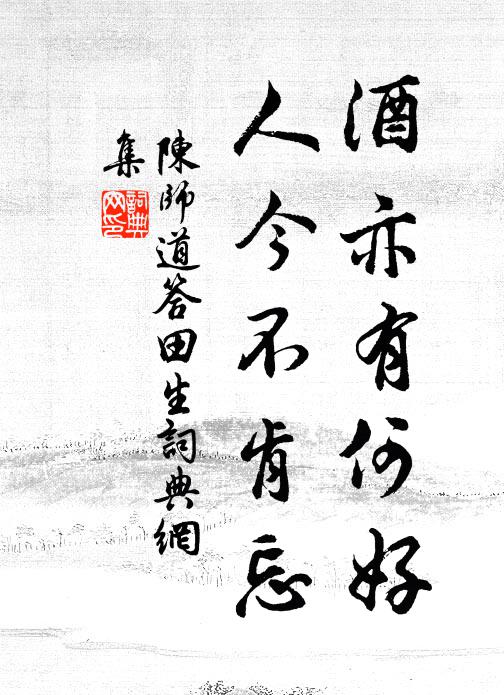 酒亦有何好
人今不肯忘
陳師道答田生詞典網
集
詞典
网印